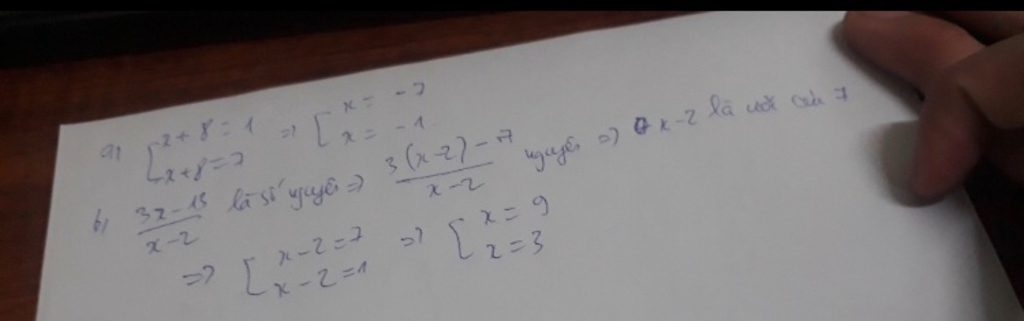 a) [x+8=1 => [x = -7
x+8=7 x = -1
b, 3x-13/x-2 là số nguyên => 3(x-2)-7/x-2 nguyên => x-2 là ước của 7
=> [x-2=7 => [x = 9
x-2=1 x=3